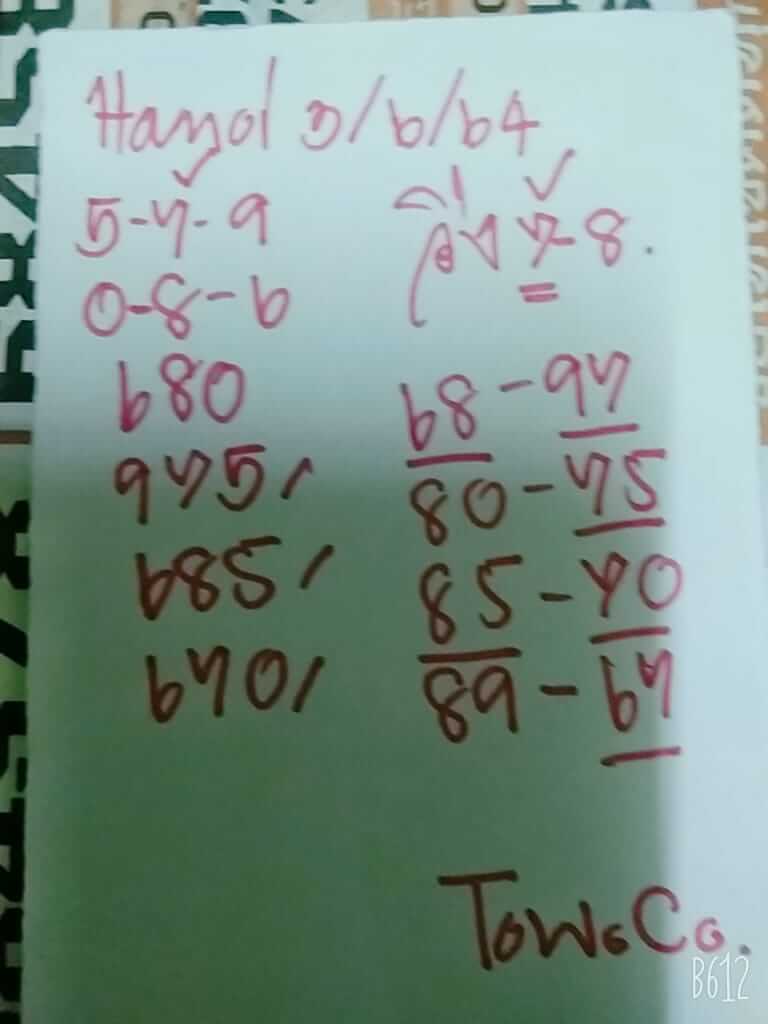 Hanoi 3/6/64
5-7-9 วิ่ง 7-8.
0-8-6
680 68-97
975/ 80-75
685/ 85-70
670/ 89-67
B612